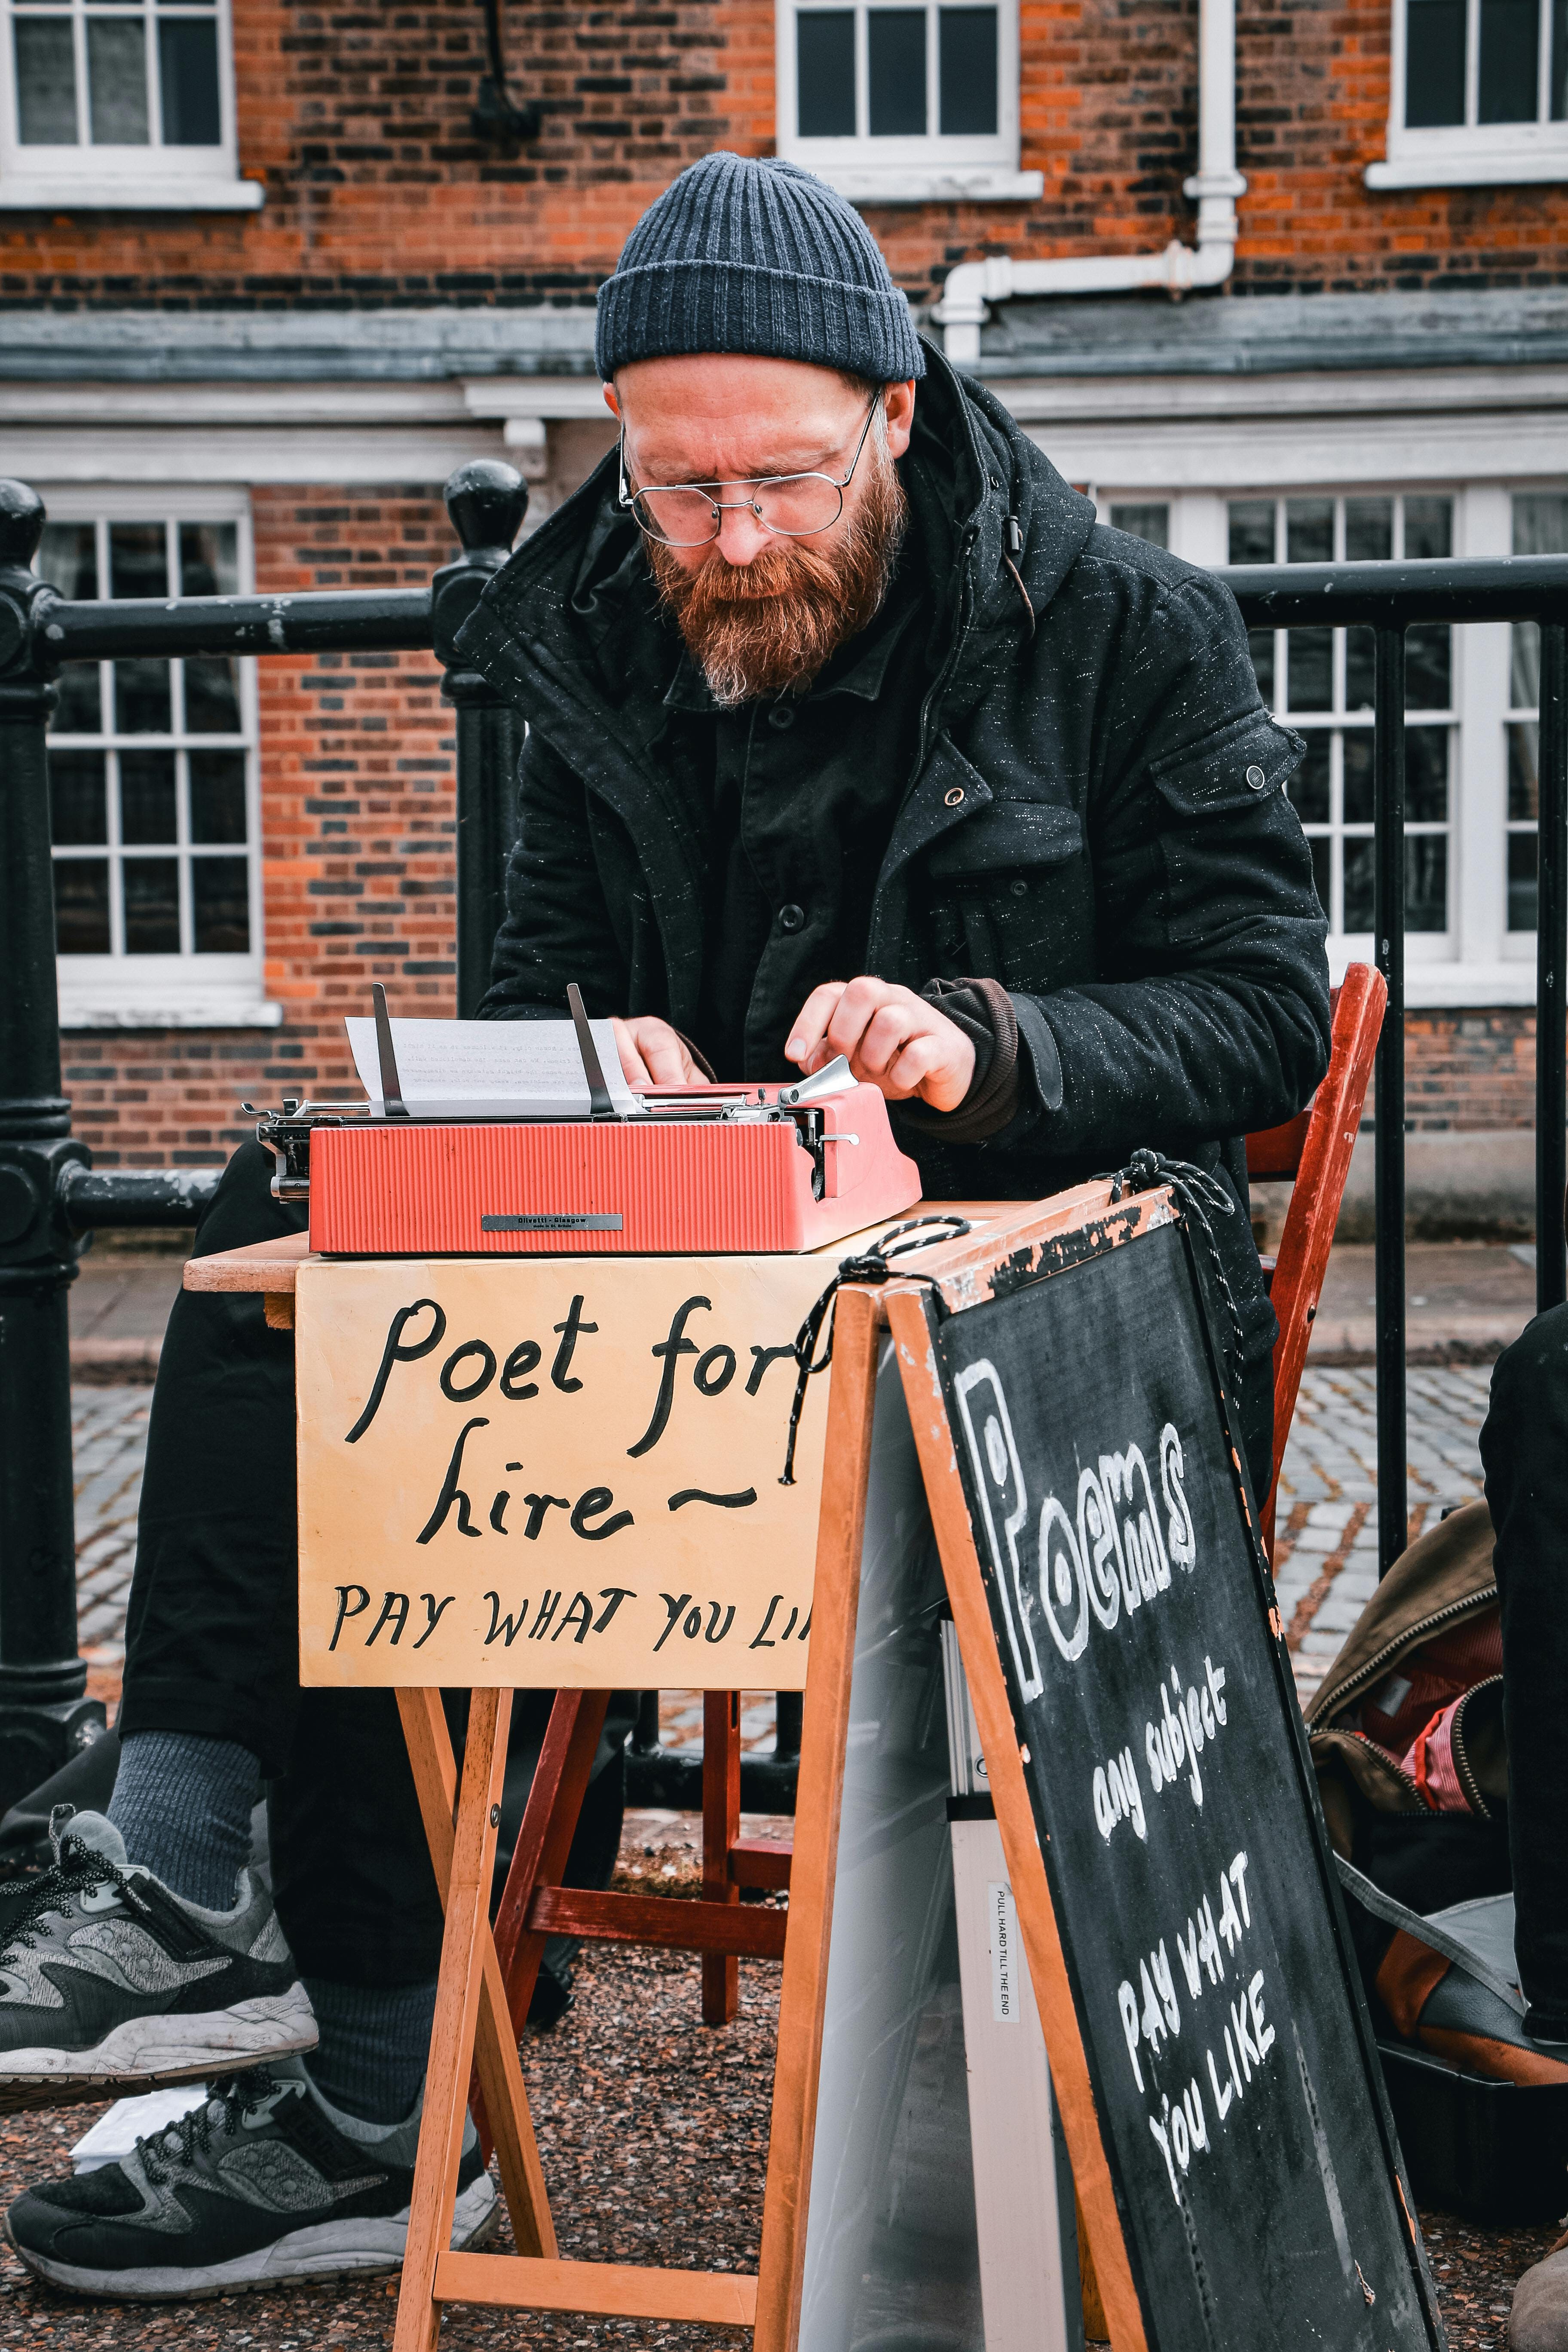 Olivetti - Glasgow
made in Gt. Britain
Poet for
hire ~
PAY WHAT YOU LI
Poems
any subject
PAY WHAT
YOU LIKE
PULL HARD TILL THE END